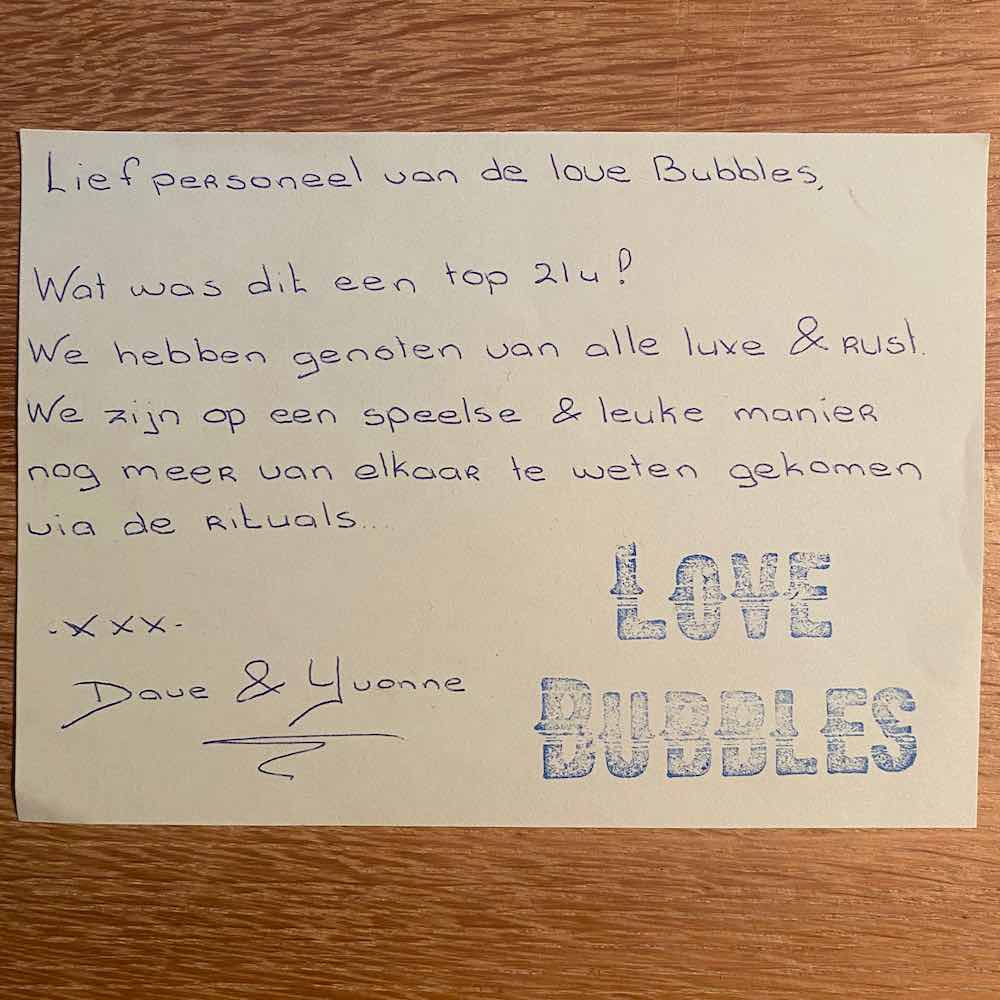 Lief personeel van de love Bubbles,
Wat was dit een top 21u!
We hebben genoten van alle luxe & rust.
We zijn op een speelse & leuke manier
nog meer van elkaar te weten gekomen
via de rituals....
-xxx-
Dave & Yvonne
LOVE
BUBBLES